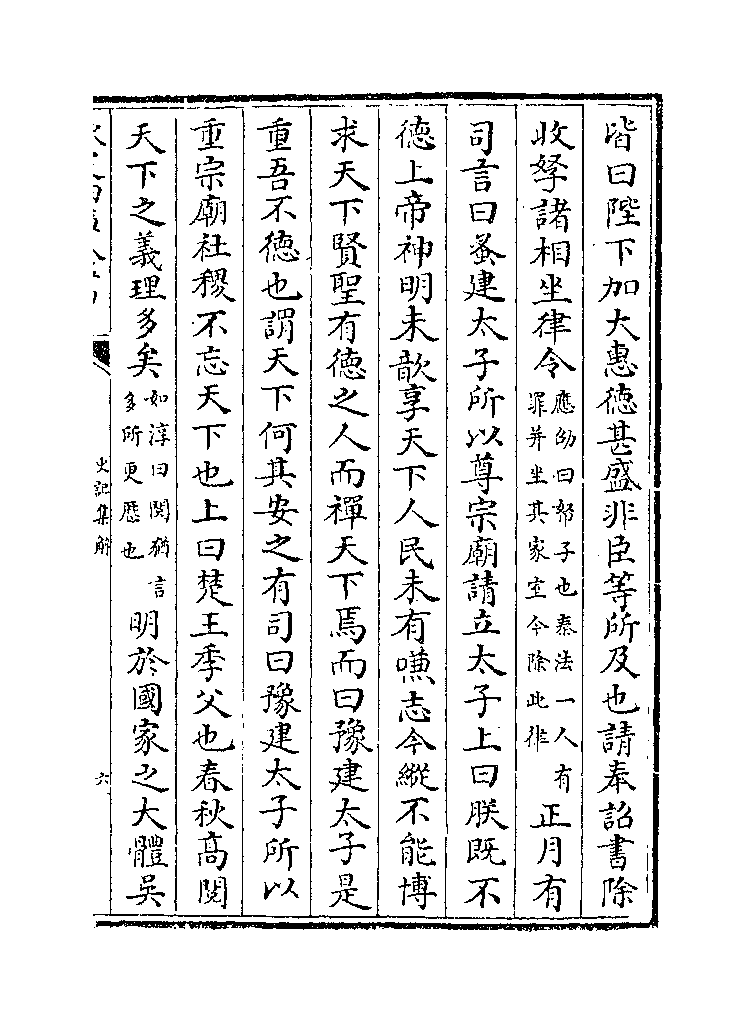 皆曰陛下加大惠徳甚盛非臣等所及也請奉詔書除
收孥諸相坐律令應劭曰帑子也秦法一人有罪并坐其家室今除此律正月有
司言曰蚤建太子所以尊宗廟請立太子上曰朕既不
徳上帝神明未歆享天下人民未有嗛志今縱不能博
求天下賢聖有徳之人而禪天下焉而曰豫建太子是
重吾不徳也謂天下何其安之有司曰豫建太子所以
重宗廟社稷不忘天下也上曰楚王季父也春秋高閲
天下之義理多矣如淳曰閲猶言多所更歴也明於國家之大體吳
史記集解
六